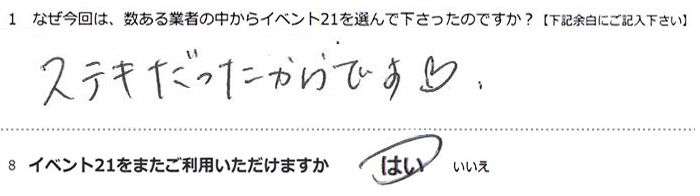 1 なぜ今回は、数ある業者の中からイベント21を選んで下さったのですか？【下記余白にご記入下さい】
ステキだったからです♡.
8 イベント21をまたご利用いただけますか はい いいえ